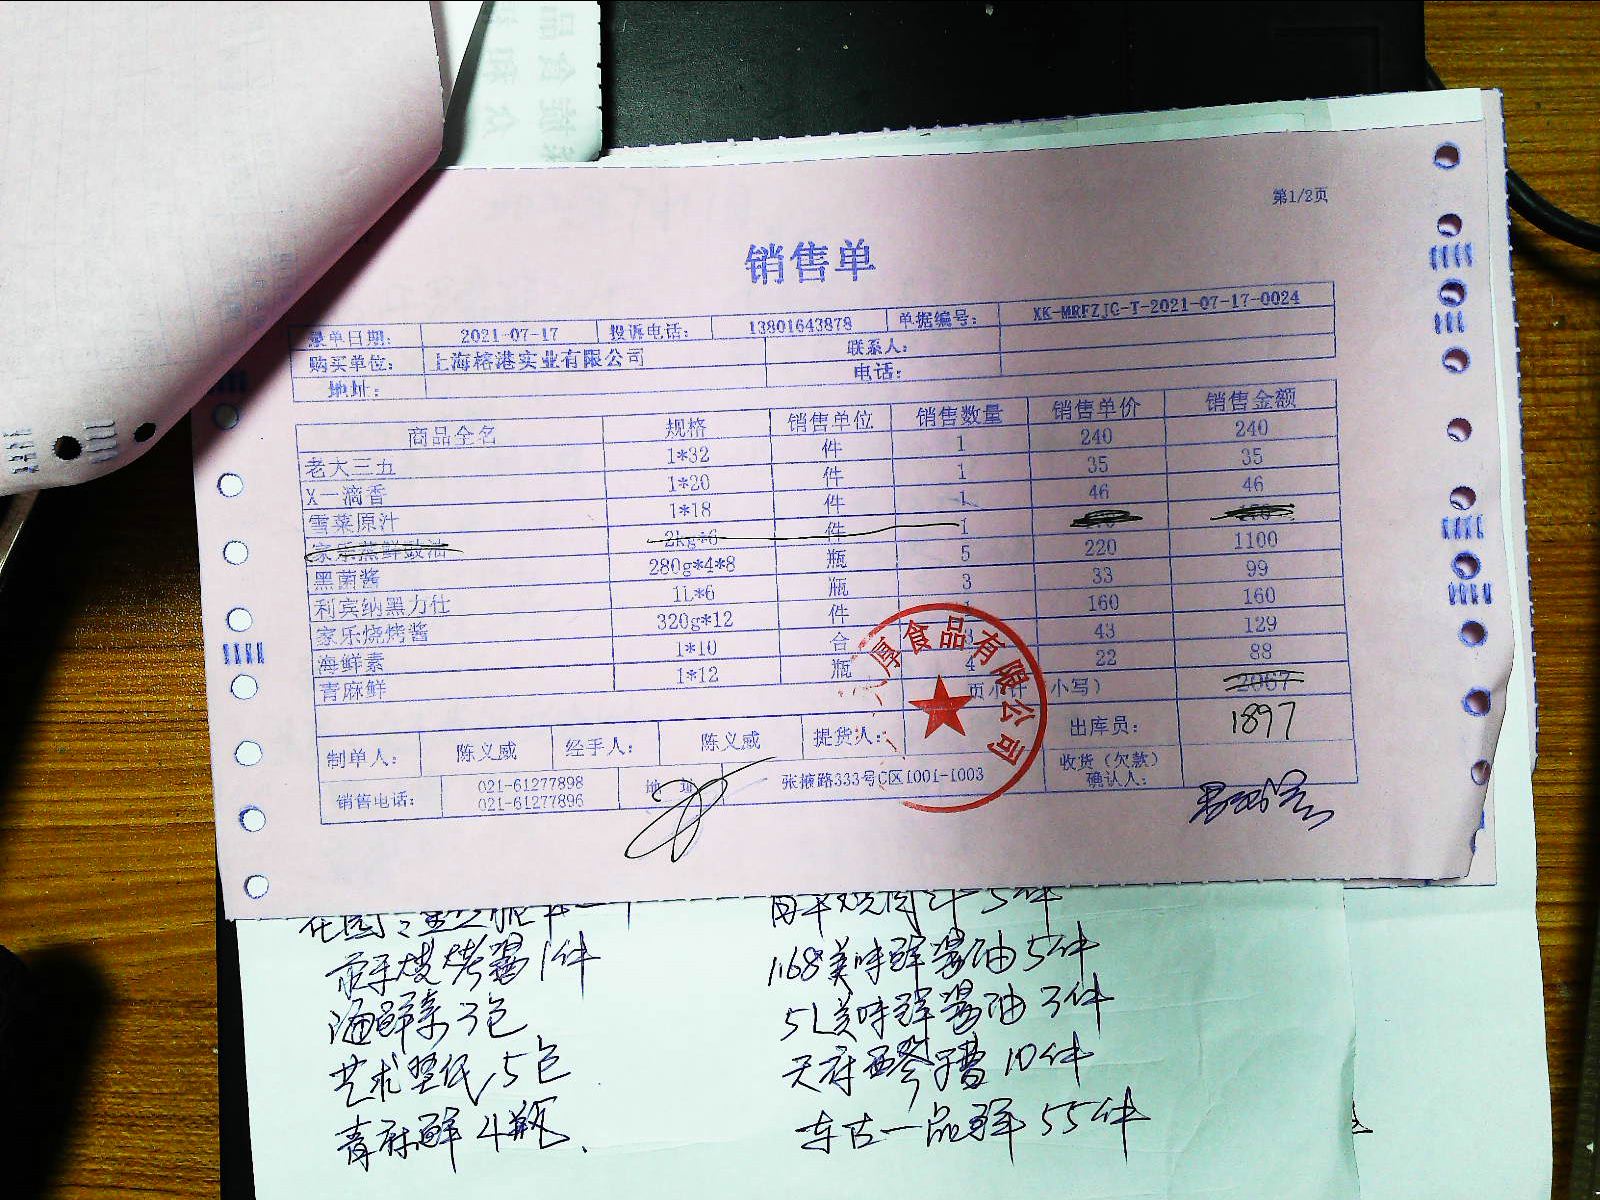 第1/2页
销售单
录单日期： 2021-07-17 投诉电话： 13801643878 单据编号： XK-MRFZJG-T-2021-07-17-0024
购买单位： 上海榕港实业有限公司 联系人：
地址： 电话：
商品全名 规格 销售单位 销售数量 销售单价 销售金额
老大三五 1*32 件 1 240 240
X一滴香 1*20 件 1 35 35
雪菜原汁 1*18 件 1 46 46
家乐蒸鲜豉油 2kg*6 件 1
黑菌酱 280g*4*8 瓶 5 220 1100
利宾纳黑力仕 1L*6 瓶 3 33 99
家乐烧烤酱 320g*12 件 160 160
海鲜素 1*10 合 3 43 129
青麻鲜 1*12 瓶 4 22 88
页小计 小写） 2067
1897
制单人： 陈义威 经手人： 陈义威 提货人： 出库员：
销售电话： 021-61277898 021-61277896 地址 张掖路333号C区1001-1003 收货（欠款）确认人：
厚食品有限公司
烧烤酱1件
海鲜素3包
5包
青麻鲜4瓶
5件
168美味鲜酱油5件
5L美味鲜酱油3件
10件
东古一品鲜55件